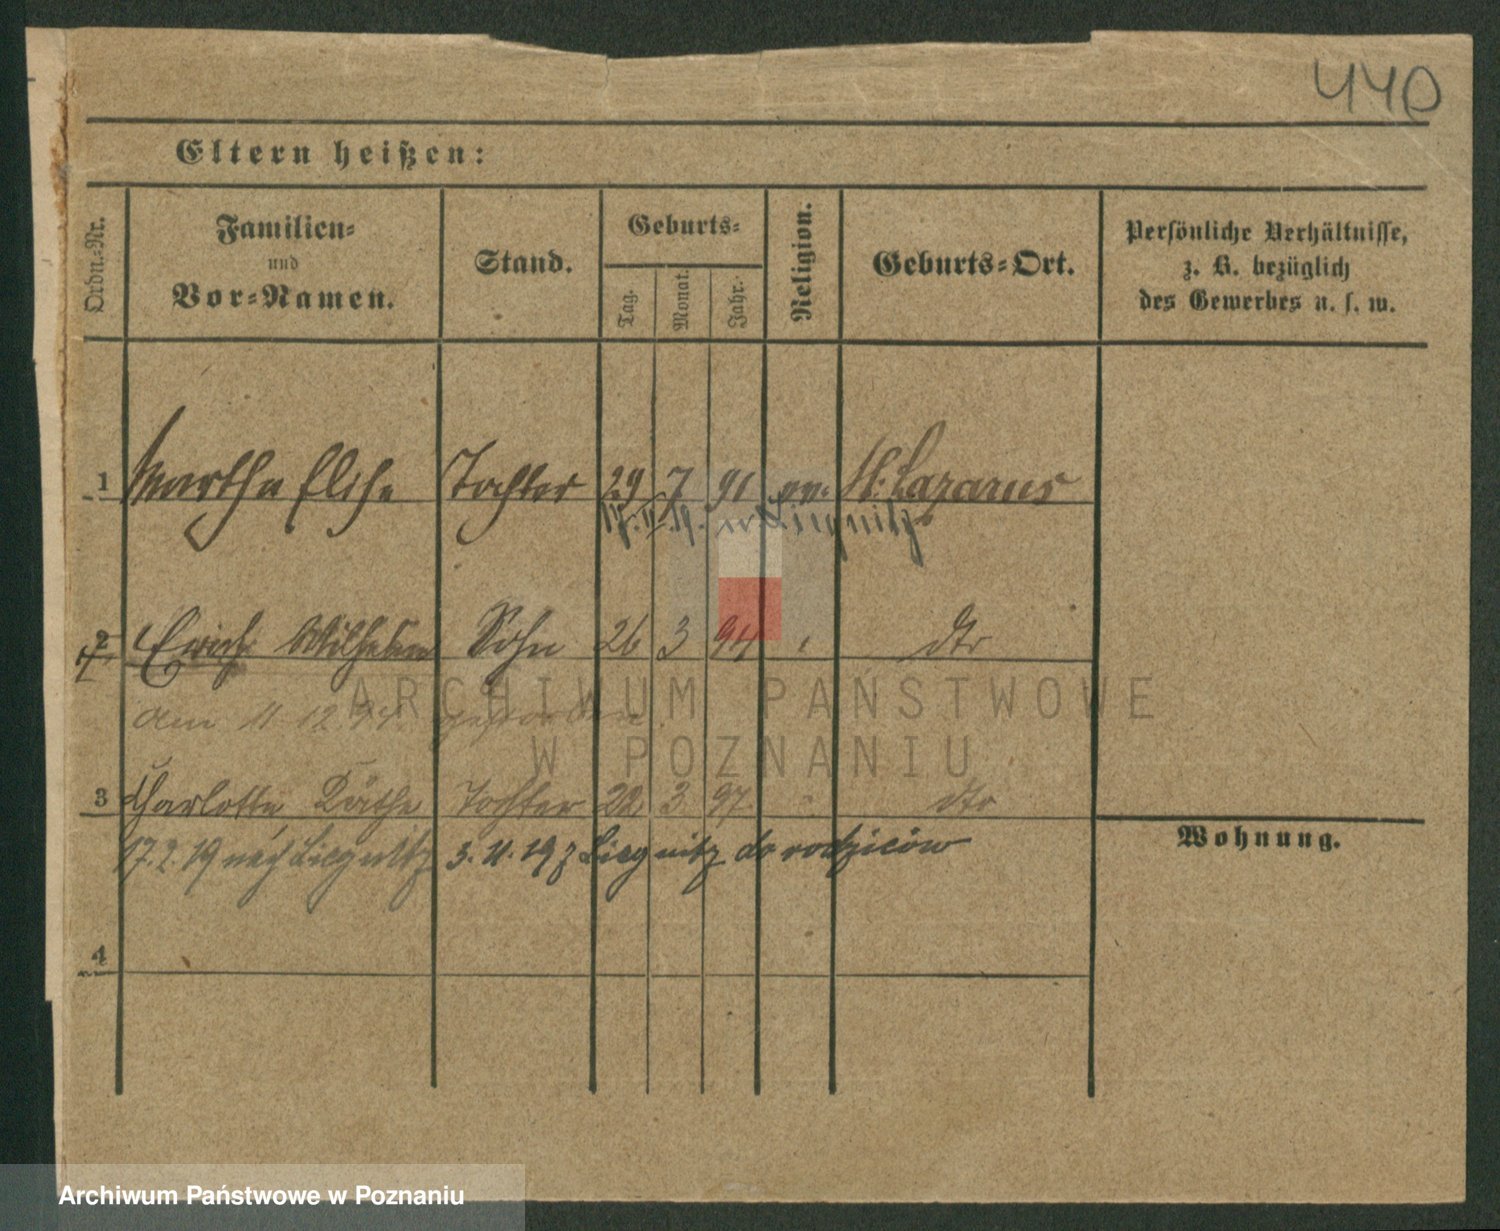 440
Eltern heißen:
Ordn.-Nr.
Familien-
und
Vor-Namen.
Stand.
Geburts-
Tag.
Monat.
Jahr.
Religion.
Geburts-Ort.
Persönliche Verhältnisse,
z. B. bezüglich
des Gewerbes u. s. w.
1 Martha Elise Tochter 29 7 91 ev. St. Lazarus
Liegnitz
2 Erich Wilhelm Sohn 26 3 94 dto
am 11 12 94 gestorben.
3 Charlotte Käthe Tochter 22 3 97 dto
17.2.19 nach Liegnitz 3.11.19 z Liegnitz do rodziców
Wohnung.
4
ARCHIWUM PAŃSTWOWE
W POZNANIU
Archiwum Państwowe w Poznaniu